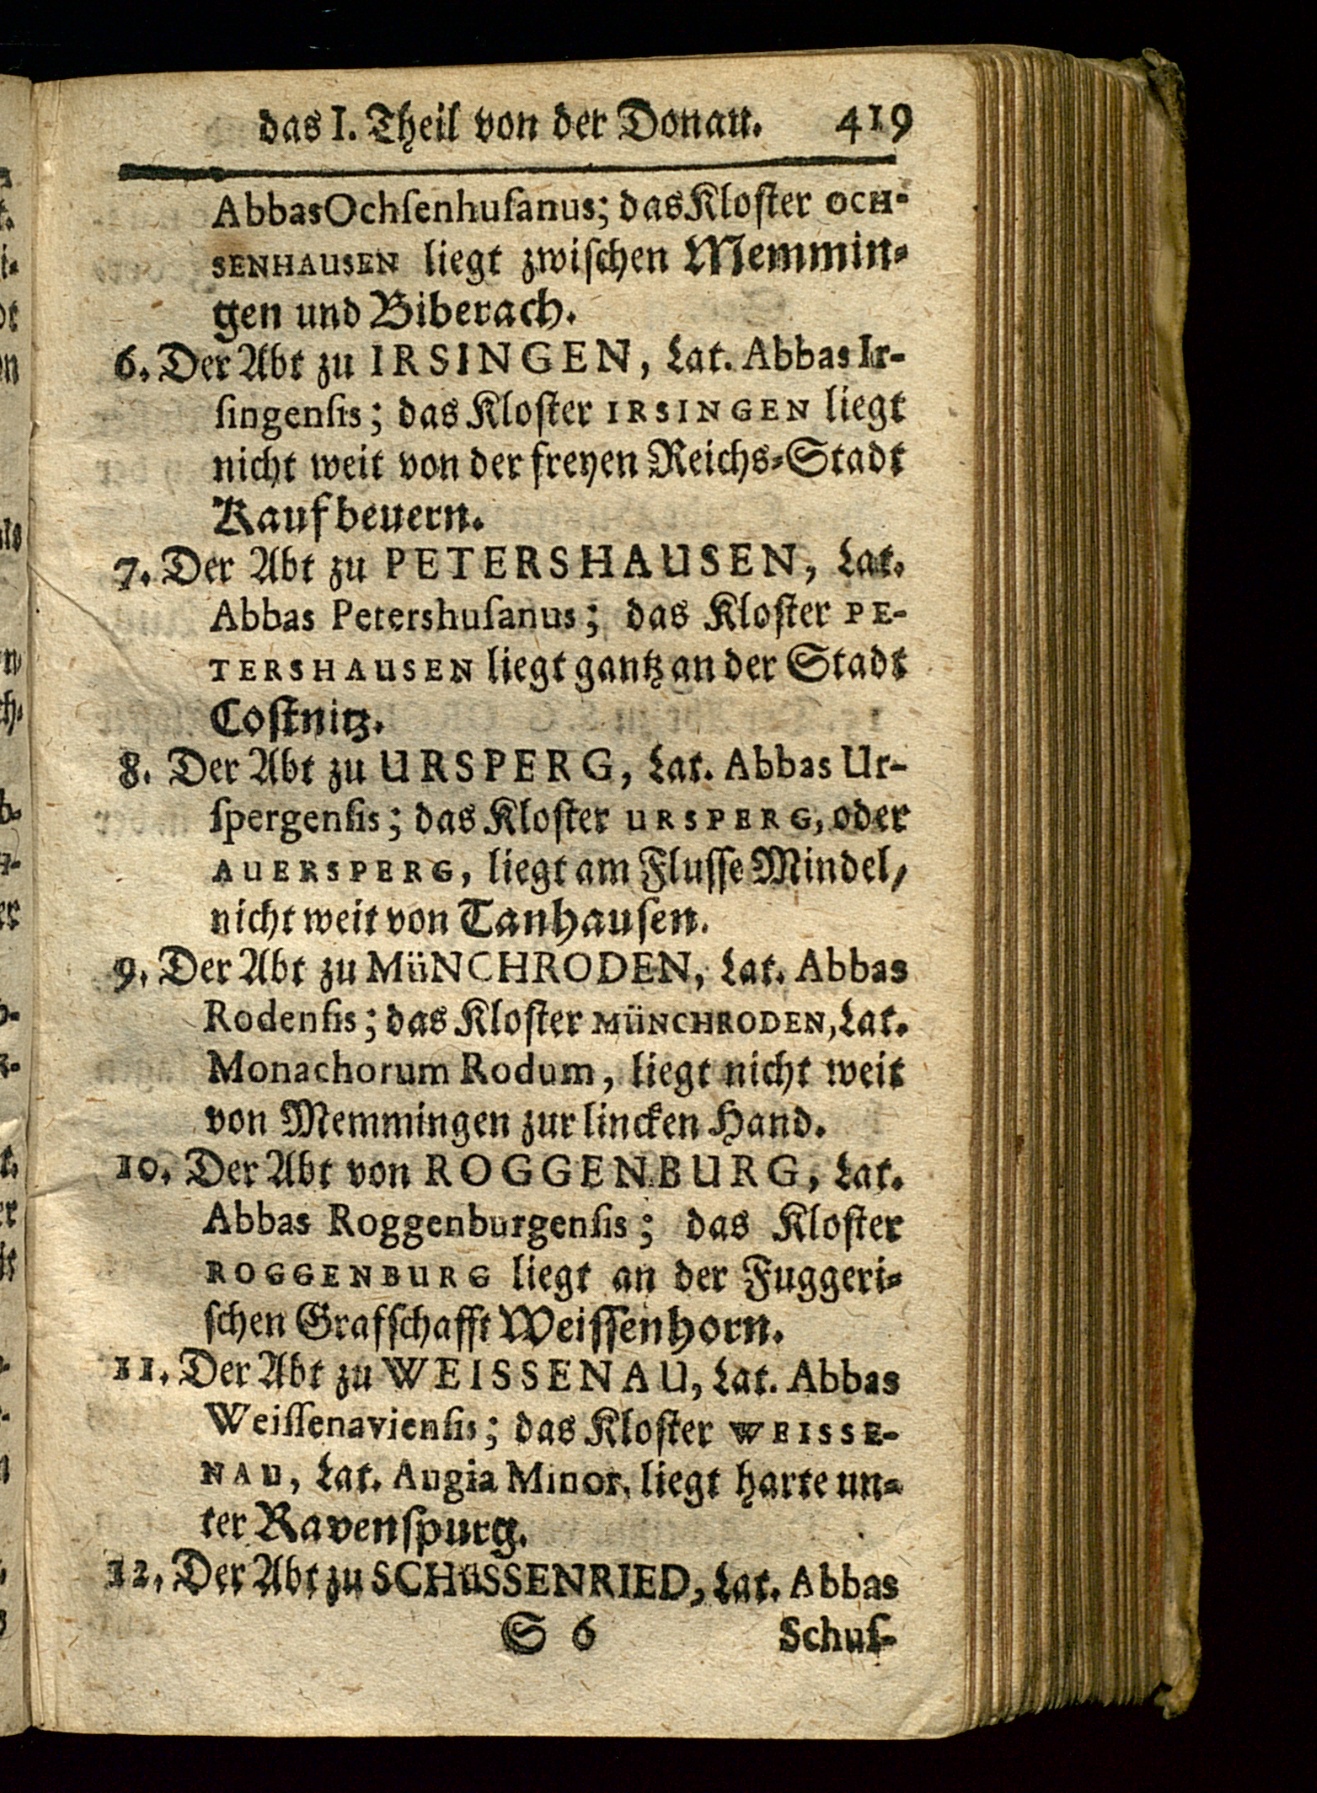 das I. Theil von der Donau. 419
Abbas Ochſenhuſanus; das Kloſter OCH-
SENHAUSEN liegt zwiſchen Memmin-
gen und Biberach.
6. Der Abt zu IRSINGEN, Lat. Abbas Ir-
ſingenſis; das Kloſter IRSINGEN liegt
nicht weit von der freyen Reichs-Stadt
Kaufbeuern.
7. Der Abt zu PETERSHAUSEN, Lat.
Abbas Petershuſanus; das Kloſter PE-
TERSHAUSEN liegt gantz an der Stadt
Coſtnitz.
8. Der Abt zu URSPERG, Lat. Abbas Ur-
ſpergenſis; das Kloſter URSPERG, oder
AUERSPERG, liegt am Fluſſe Mindel,
nicht weit von Tanhauſen.
9. Der Abt zu MüNCHRODEN, Lat. Abbas
Rodenſis; das Kloſter MÜNCHRODEN, Lat.
Monachorum Rodum, liegt nicht weit
von Memmingen zur lincken Hand.
10. Der Abt von ROGGENBURG, Lat.
Abbas Roggenburgenſis; das Kloſter
ROGGENBURG liegt an der Fuggeri-
ſchen Grafſchafft Weiſſenhorn.
11. Der Abt zu WEISSENAU, Lat. Abbas
Weiſſenavienſis; das Kloſter WEISSE-
NAU, Lat. Augia Minor, liegt harte un-
ter Ravenſpurg.
12. Der Abt zu SCHüSSENRIED, Lat. Abbas
S 6 Schuſ-